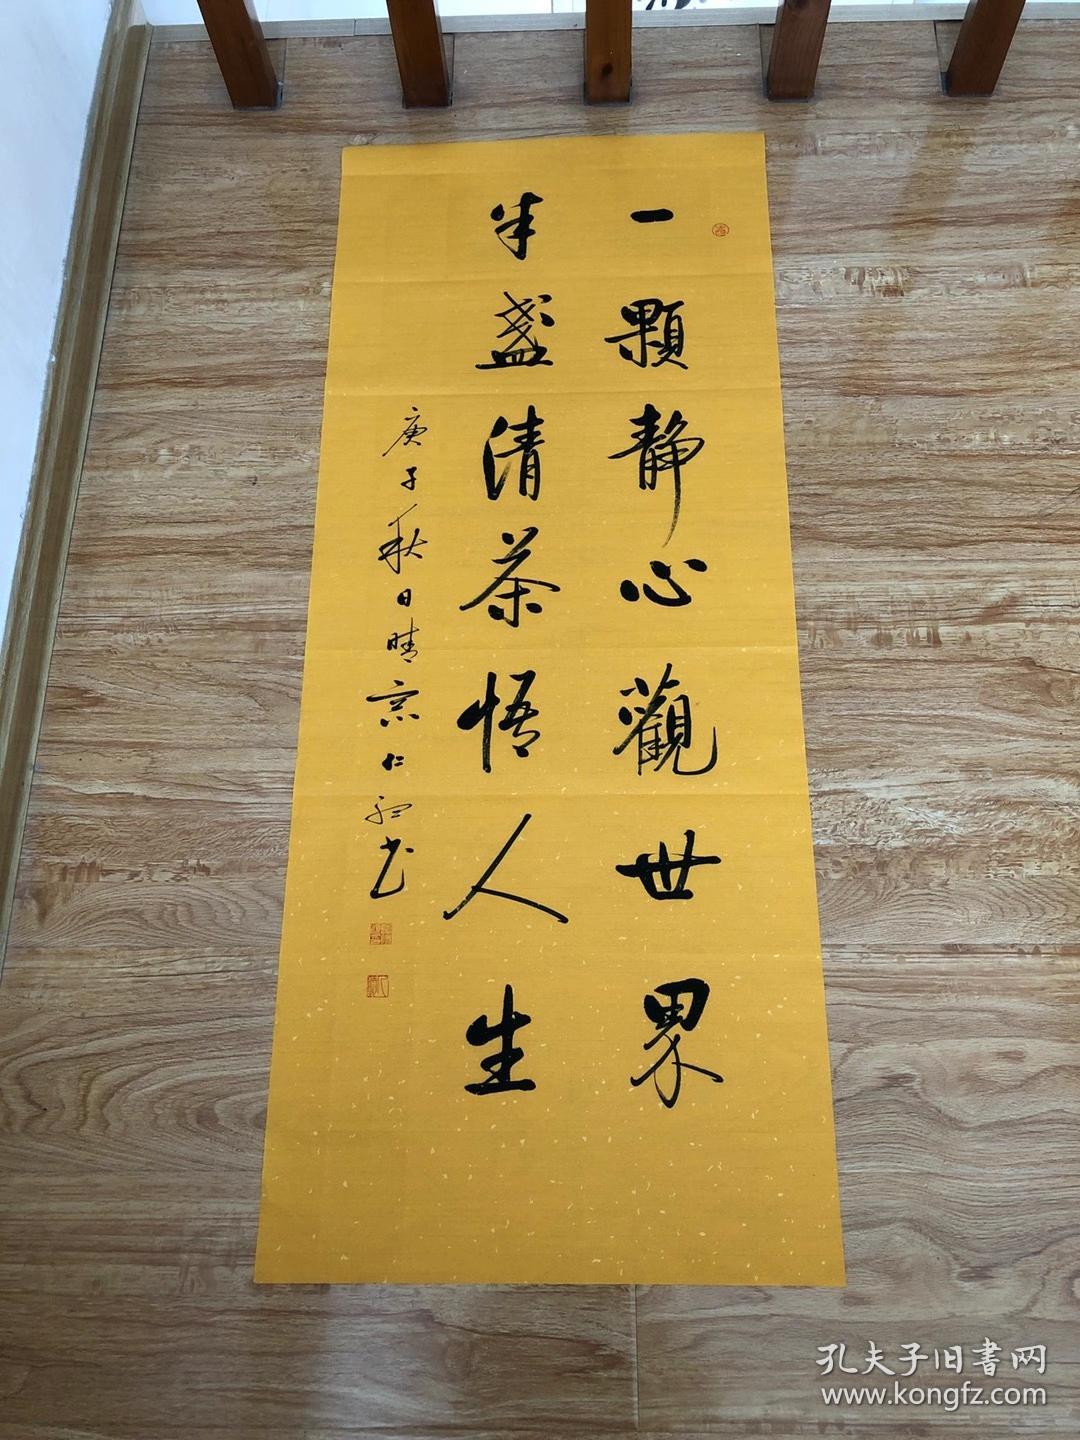 一顆靜心觀世界
半盞清茶悟人生
庚子秋日晴窗仁和书
孔夫子旧書网
www.kongfz.com